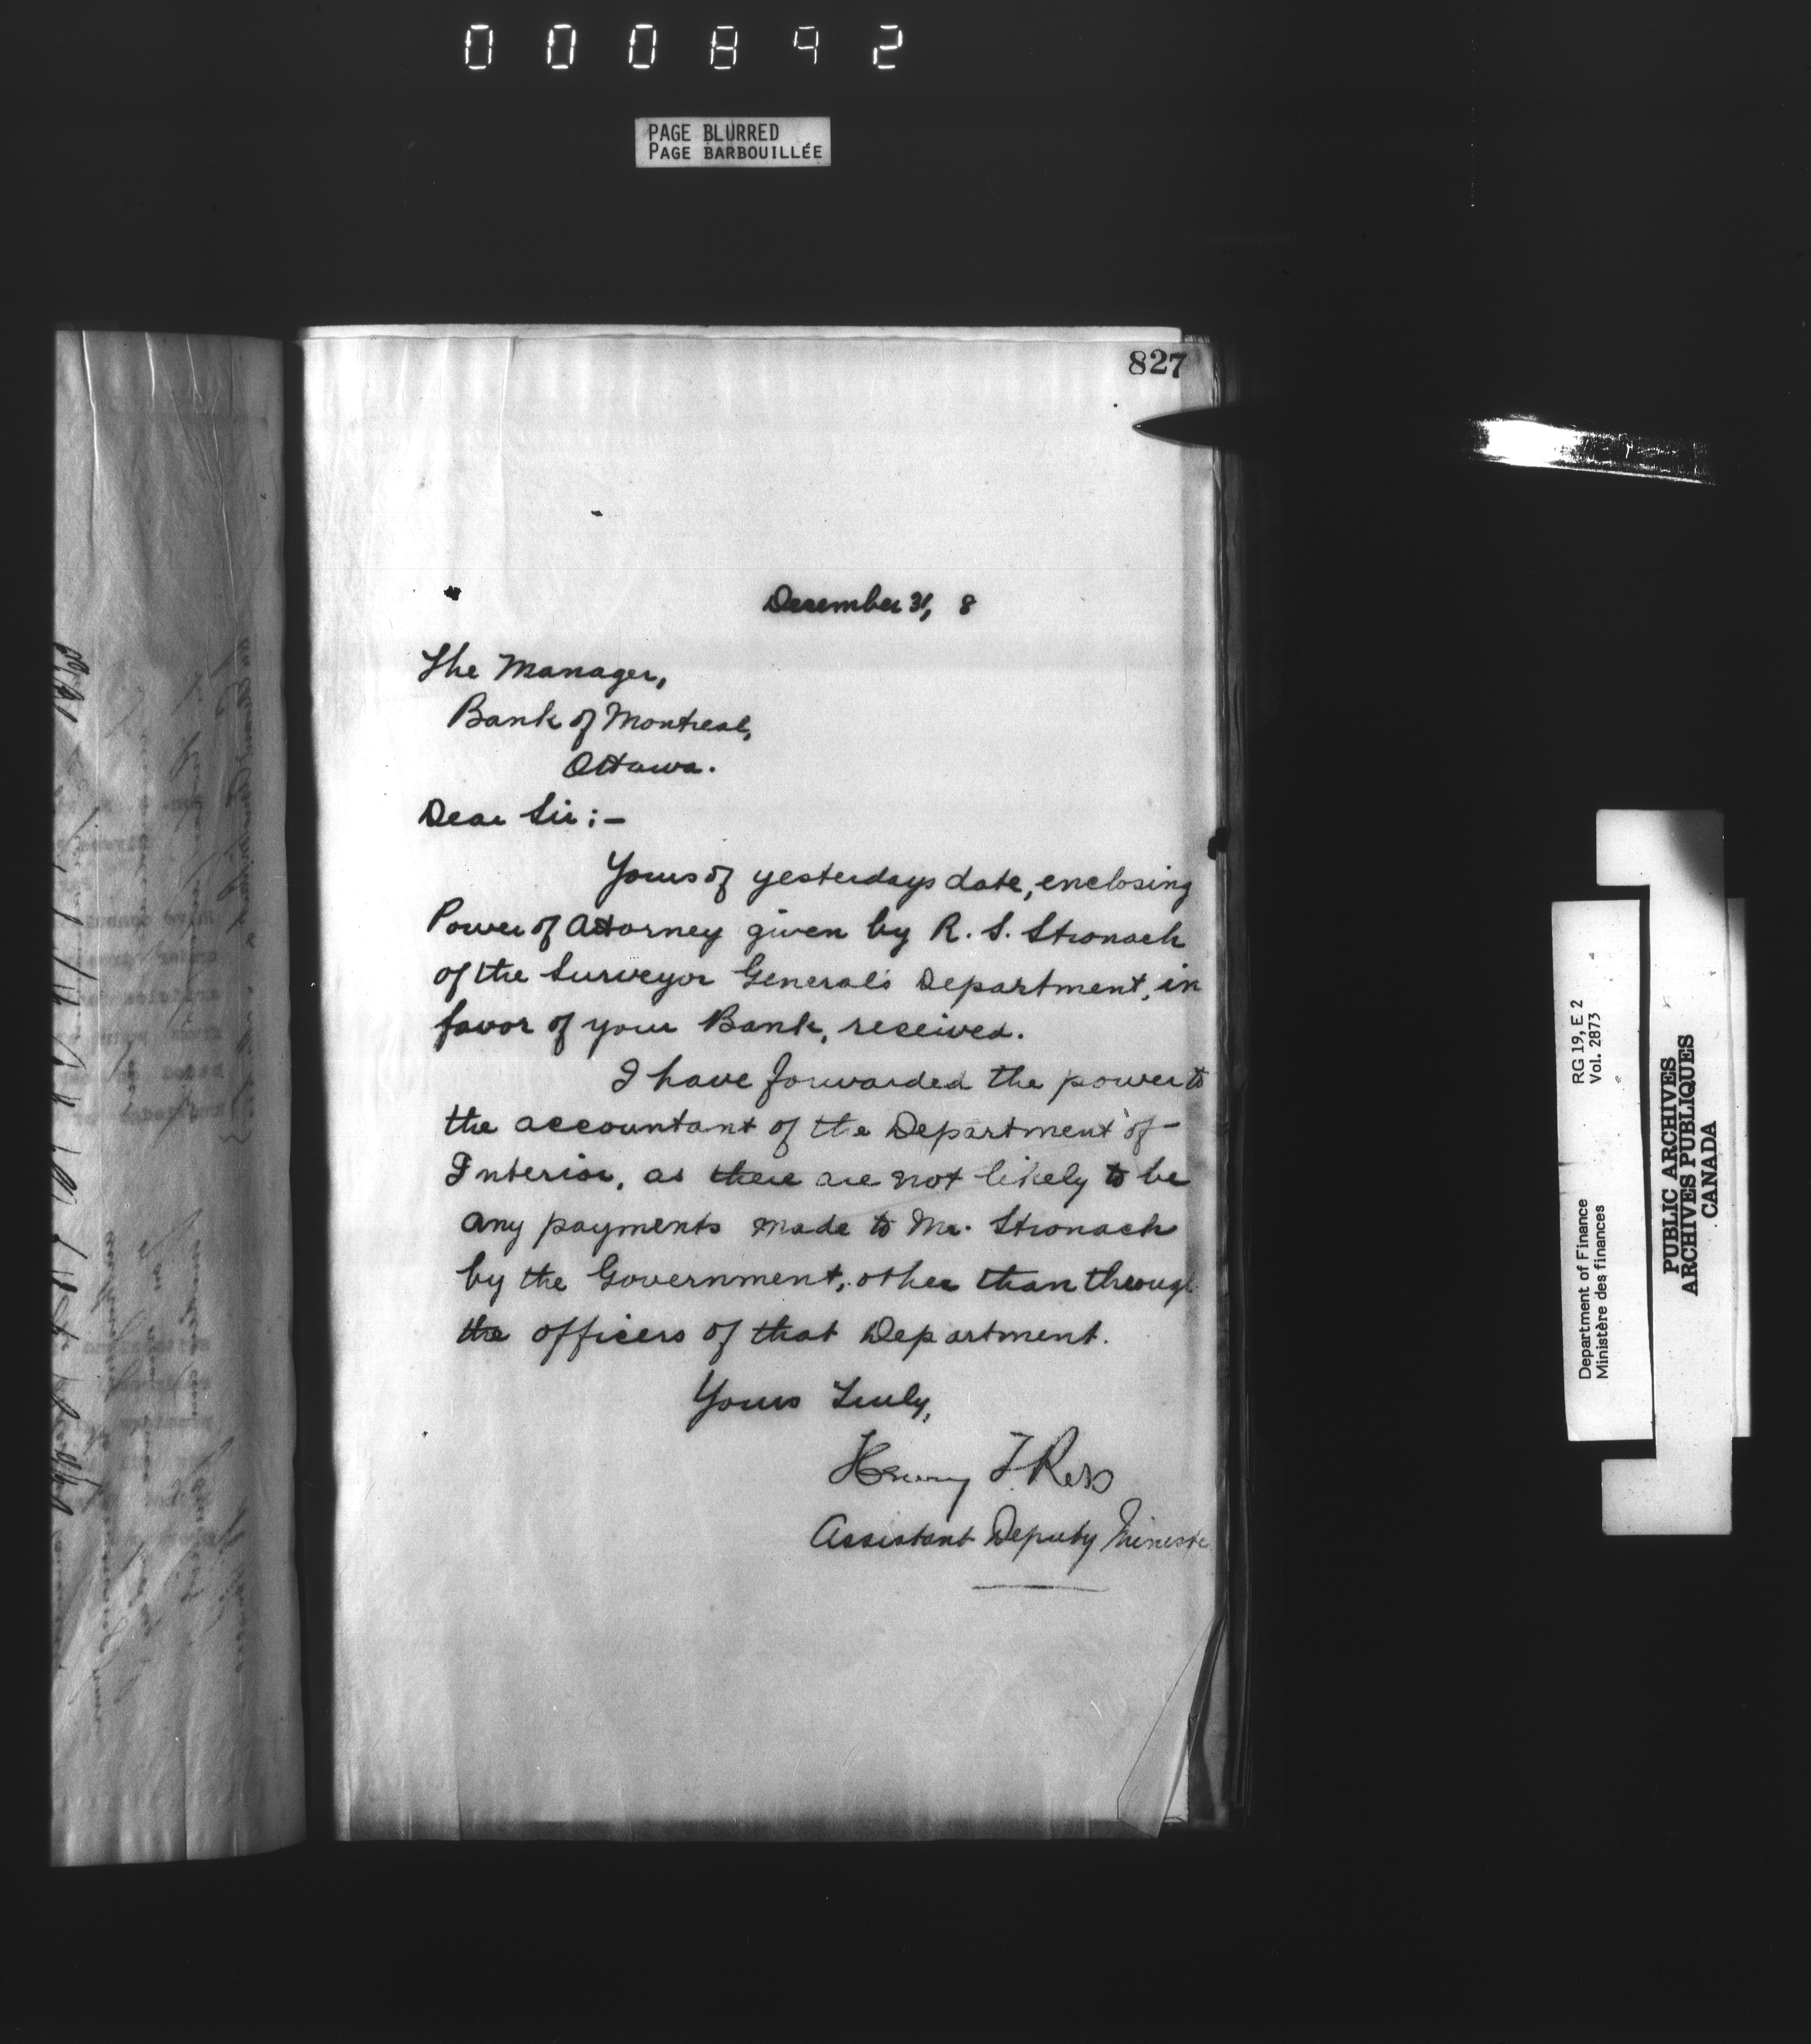 000892
PAGE BLURRED
PAGE BARBOUILLÉE
827
December 31, 8
The Manager,
Bank of Montreal,
Ottawa.
Dear Sir;-
Yours of yesterdays date, enclosing
Power of Attorney given by R. S. Stronach
of the Surveyor General's Department, in
favor of your Bank, received.
I have forwarded the power to
the accountant of the Department of
Interior, as there are not likely to be
any payments made to Mr. Stronach
by the Government, other than through
the officers of that Department.
Yours Truly,
Henry T. Ross
Assistant Deputy Ministe
RG 19, E 2
Vol. 2873
Department of Finance
Ministère des finances
PUBLIC ARCHIVES
ARCHIVES PUBLIQUES
CANADA